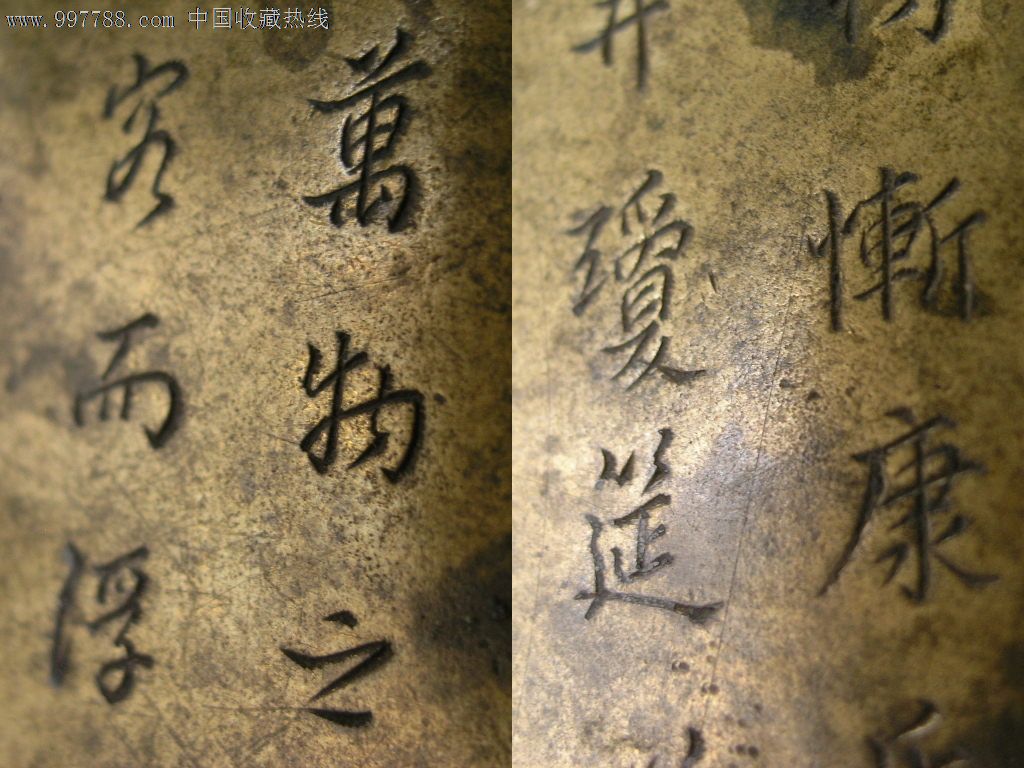 www.997788.com 中国收藏热线
萬物之
客而浮
慚康
瓊筵